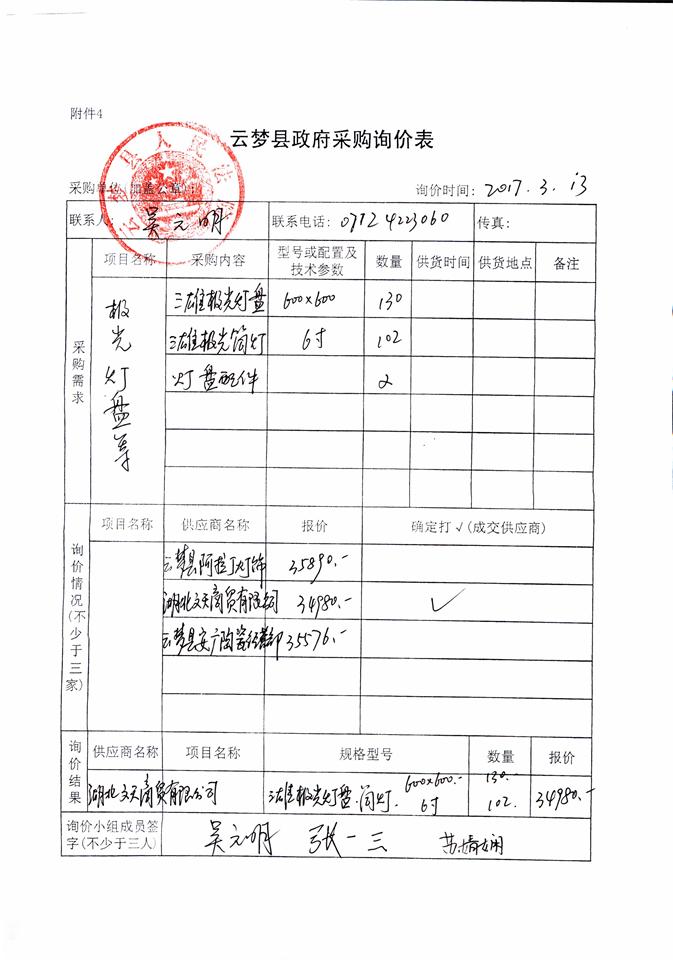 附件4
云梦县政府采购询价表
采购单位(加盖公章): 询价时间: 2017.3.13
联系人: 吴元明 联系电话: 0712 4223060 传真:
采购需求
项目名称 采购内容 型号或配置及技术参数 数量 供货时间 供货地点 备注
极光灯盘等
三雄极光灯盘 600×600 130
三雄极光筒灯 6寸 102
灯盘配件 2
询价情况(不少于三家)
项目名称 供应商名称 报价 确定打√(成交供应商)
云梦县阿拉丁灯饰 35890.-
湖北文天商贸有限公司 34980.- √
云梦县安广陶瓷经营部 35576.-
询价结果
供应商名称 项目名称 规格型号 数量 报价
湖北文天商贸有限公司 三雄极光灯盘.筒灯. 600×600.- 6寸 130.- 102. 34980.-
询价小组成员签字(不少于三人) 吴元明 张一三